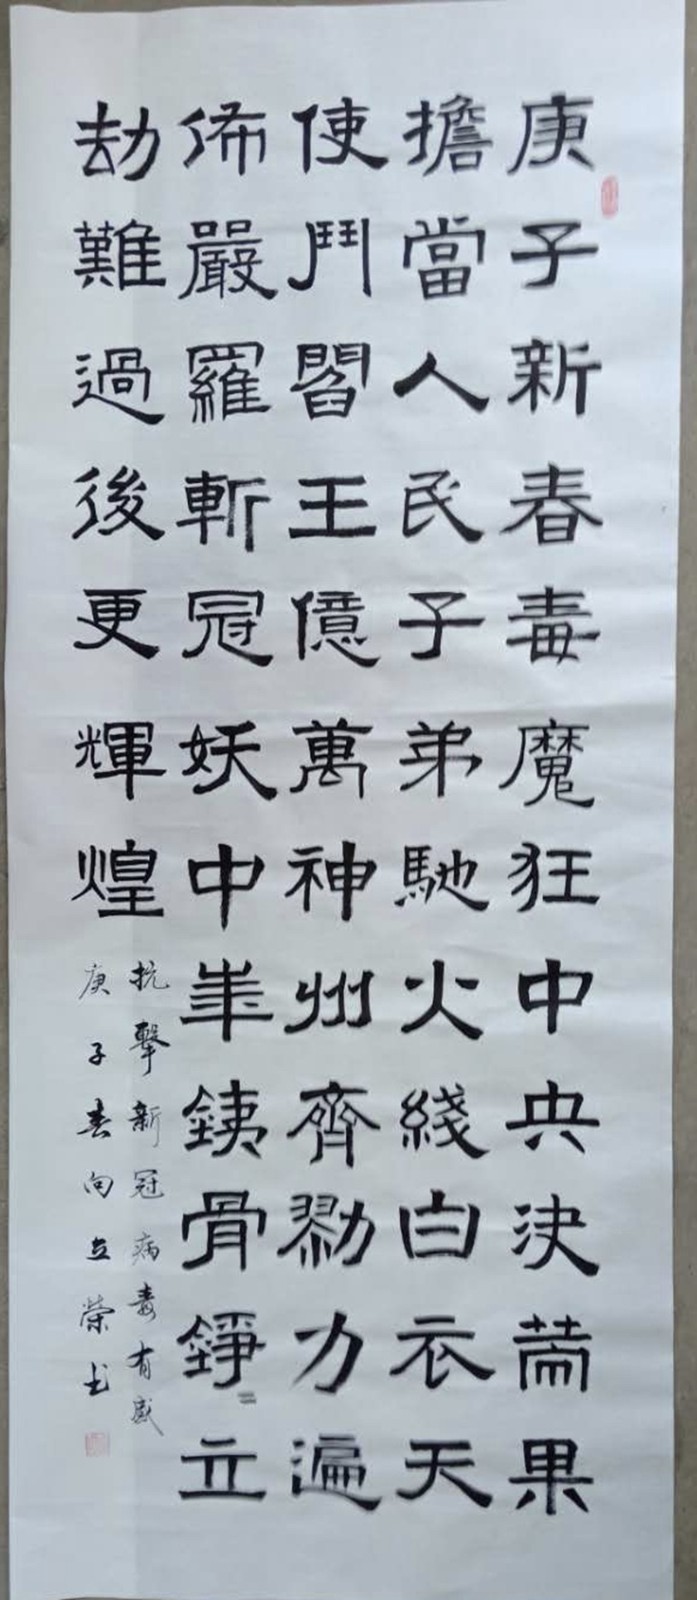 庚子新春毒魔狂中央決策果
擔當人民子弟馳火綫白衣天
使鬥閻王億萬神州齊勠力遍
佈嚴羅斬冠妖中華鐵骨錚〻立
劫難過後更輝煌
抗擊新冠病毒有感
庚子春向立榮书